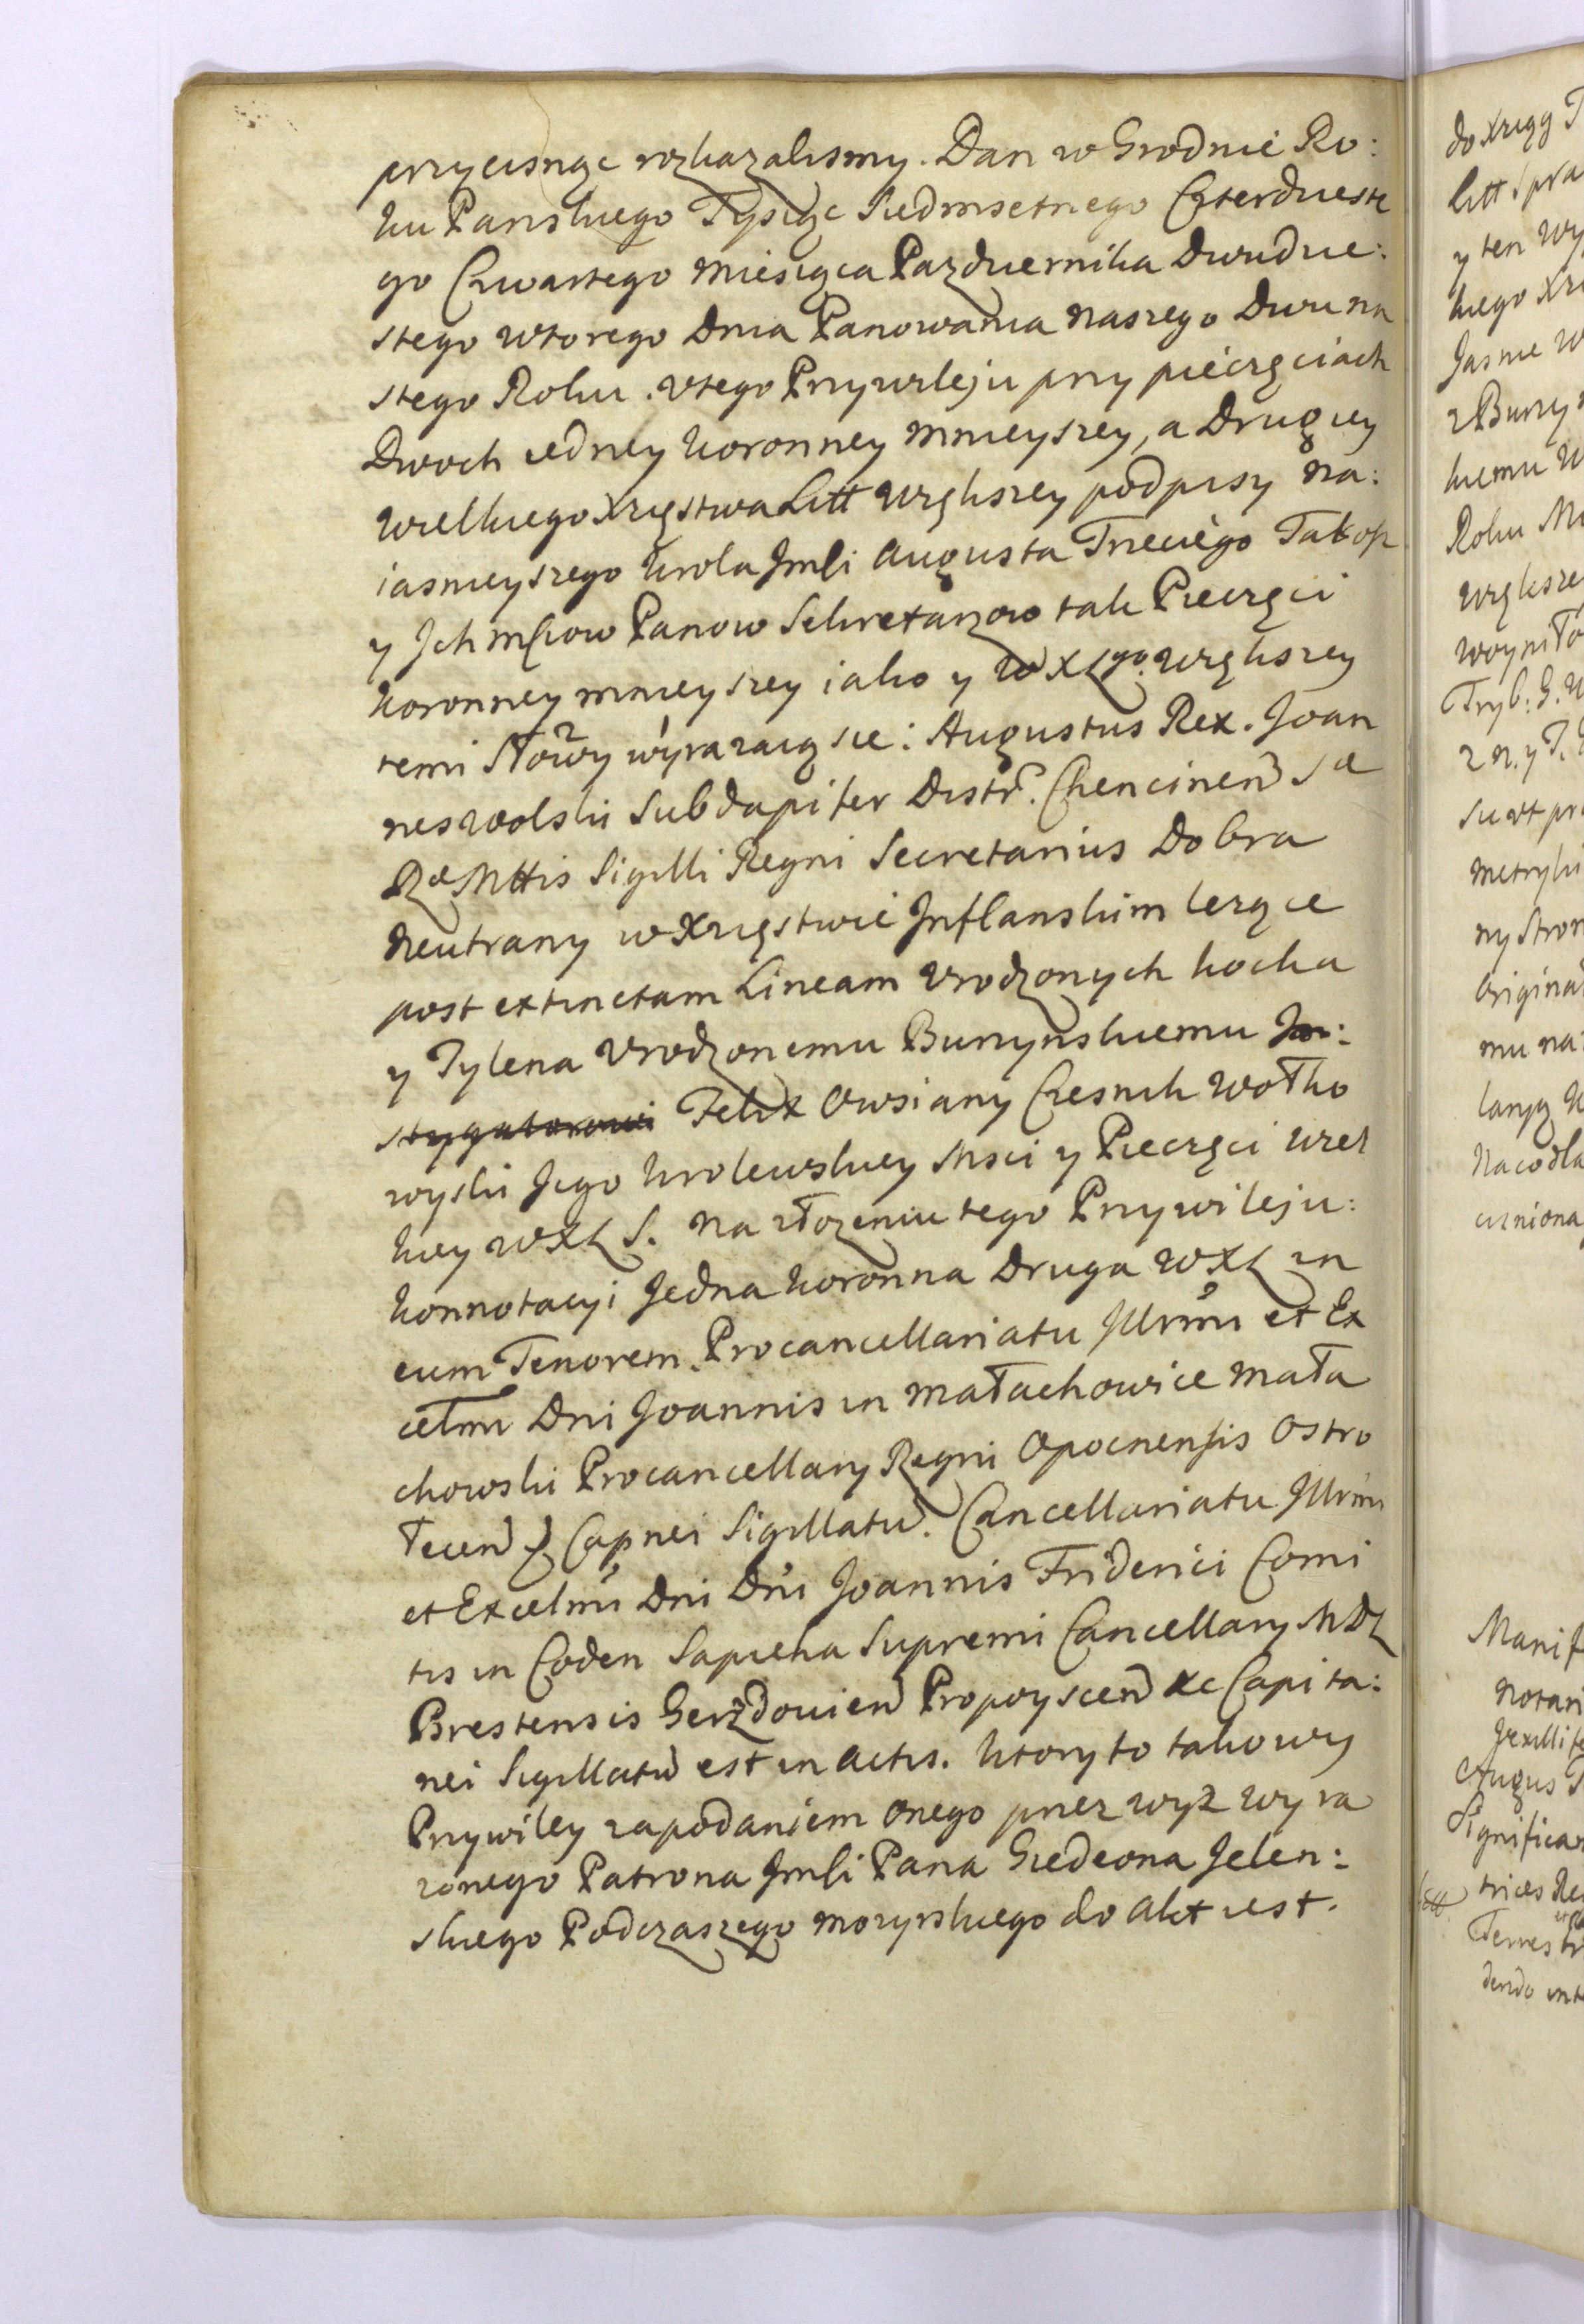 przycisnąc rozkazalismy. Dan w Grodnie Ro:
ku Panskiego Tysiąc Siedmsetnego Czterdzieste
go Czwartego Miesiąca Pazdziernika Dwudzie:
stego wtorego Dnia Panowania Naszego Dwuna
stego Roku. v tego Przywileju przy pieczęciach
Dwoch iedney koronney Mnieyszey, a Drugiey
wielkiego Xięstwa Litt większey podpisy na:
iasnieyszego krola Jmśi Augusta Trzeciego Tak
y Ich mściow Panow Sekretarzow tak Pieczęci
koronney mnieyszey iako y W X Lgo. większey
temi Słowy wyrazaią się: Augustus Rex. Joan
nes wolski Subdapifer Distr. Chencinen S ae
Rae Mttis Sigilli Regni Secretarius Dobra
Neutrany w Xięstwie Inflanskim lezące
post extinctam Lineam vrodzonych kocha
y Tylena vrodzonemu Burzynskiemu In:
stygatorowi Felix Owsiany Czesnik wołko
wyski Jego krolewskiey Msci y Pieczęci wiel
kiey W X L S. Na złozeniu tego Przywileju:
konnotacyi Jedna koronna Druga W X L in
eum Tenorem. Procancellariatu Illrmi et Ex
cellmi Dni Joannis in Małachowice Mała
chowski Procancellary Regni Opocnensis Ostro
łecen & Capnei Sigillatu. Cancellariatu Illrmi
et Excelmi Dni Dni Joannis Friderici Comi
tis in Coden Sapieha Supremi Cancellary M D L
Brestensis Gerzdowien Propoyscen &c Capita:
nei Sigillatu est in Actis. ktory to takowy
Przywiley zapodaniem onego przez wyz wyra
zonego Patrona Jmśi Pana Giedeona Jelen:
skiego Podczaszego mozyrskiego do Akt iest.
do Xięg
Litt Spra
y ten wy
kiego
Jasnie
kiemu
Roku
większe
woyniło
Tryb: G.
metryki
ny Stron
Original
mu na
Naco dla
Manif
notari
Augus
Significa
trices
Terrestr